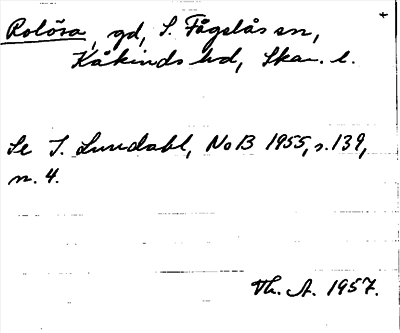 Rolösa, gd, S. Fågelås sn,
Kåkinds hd, Skar. l.
Se I. Lundahl, NoB 1955, s. 139,
n. 4.
Th. A. 1957.